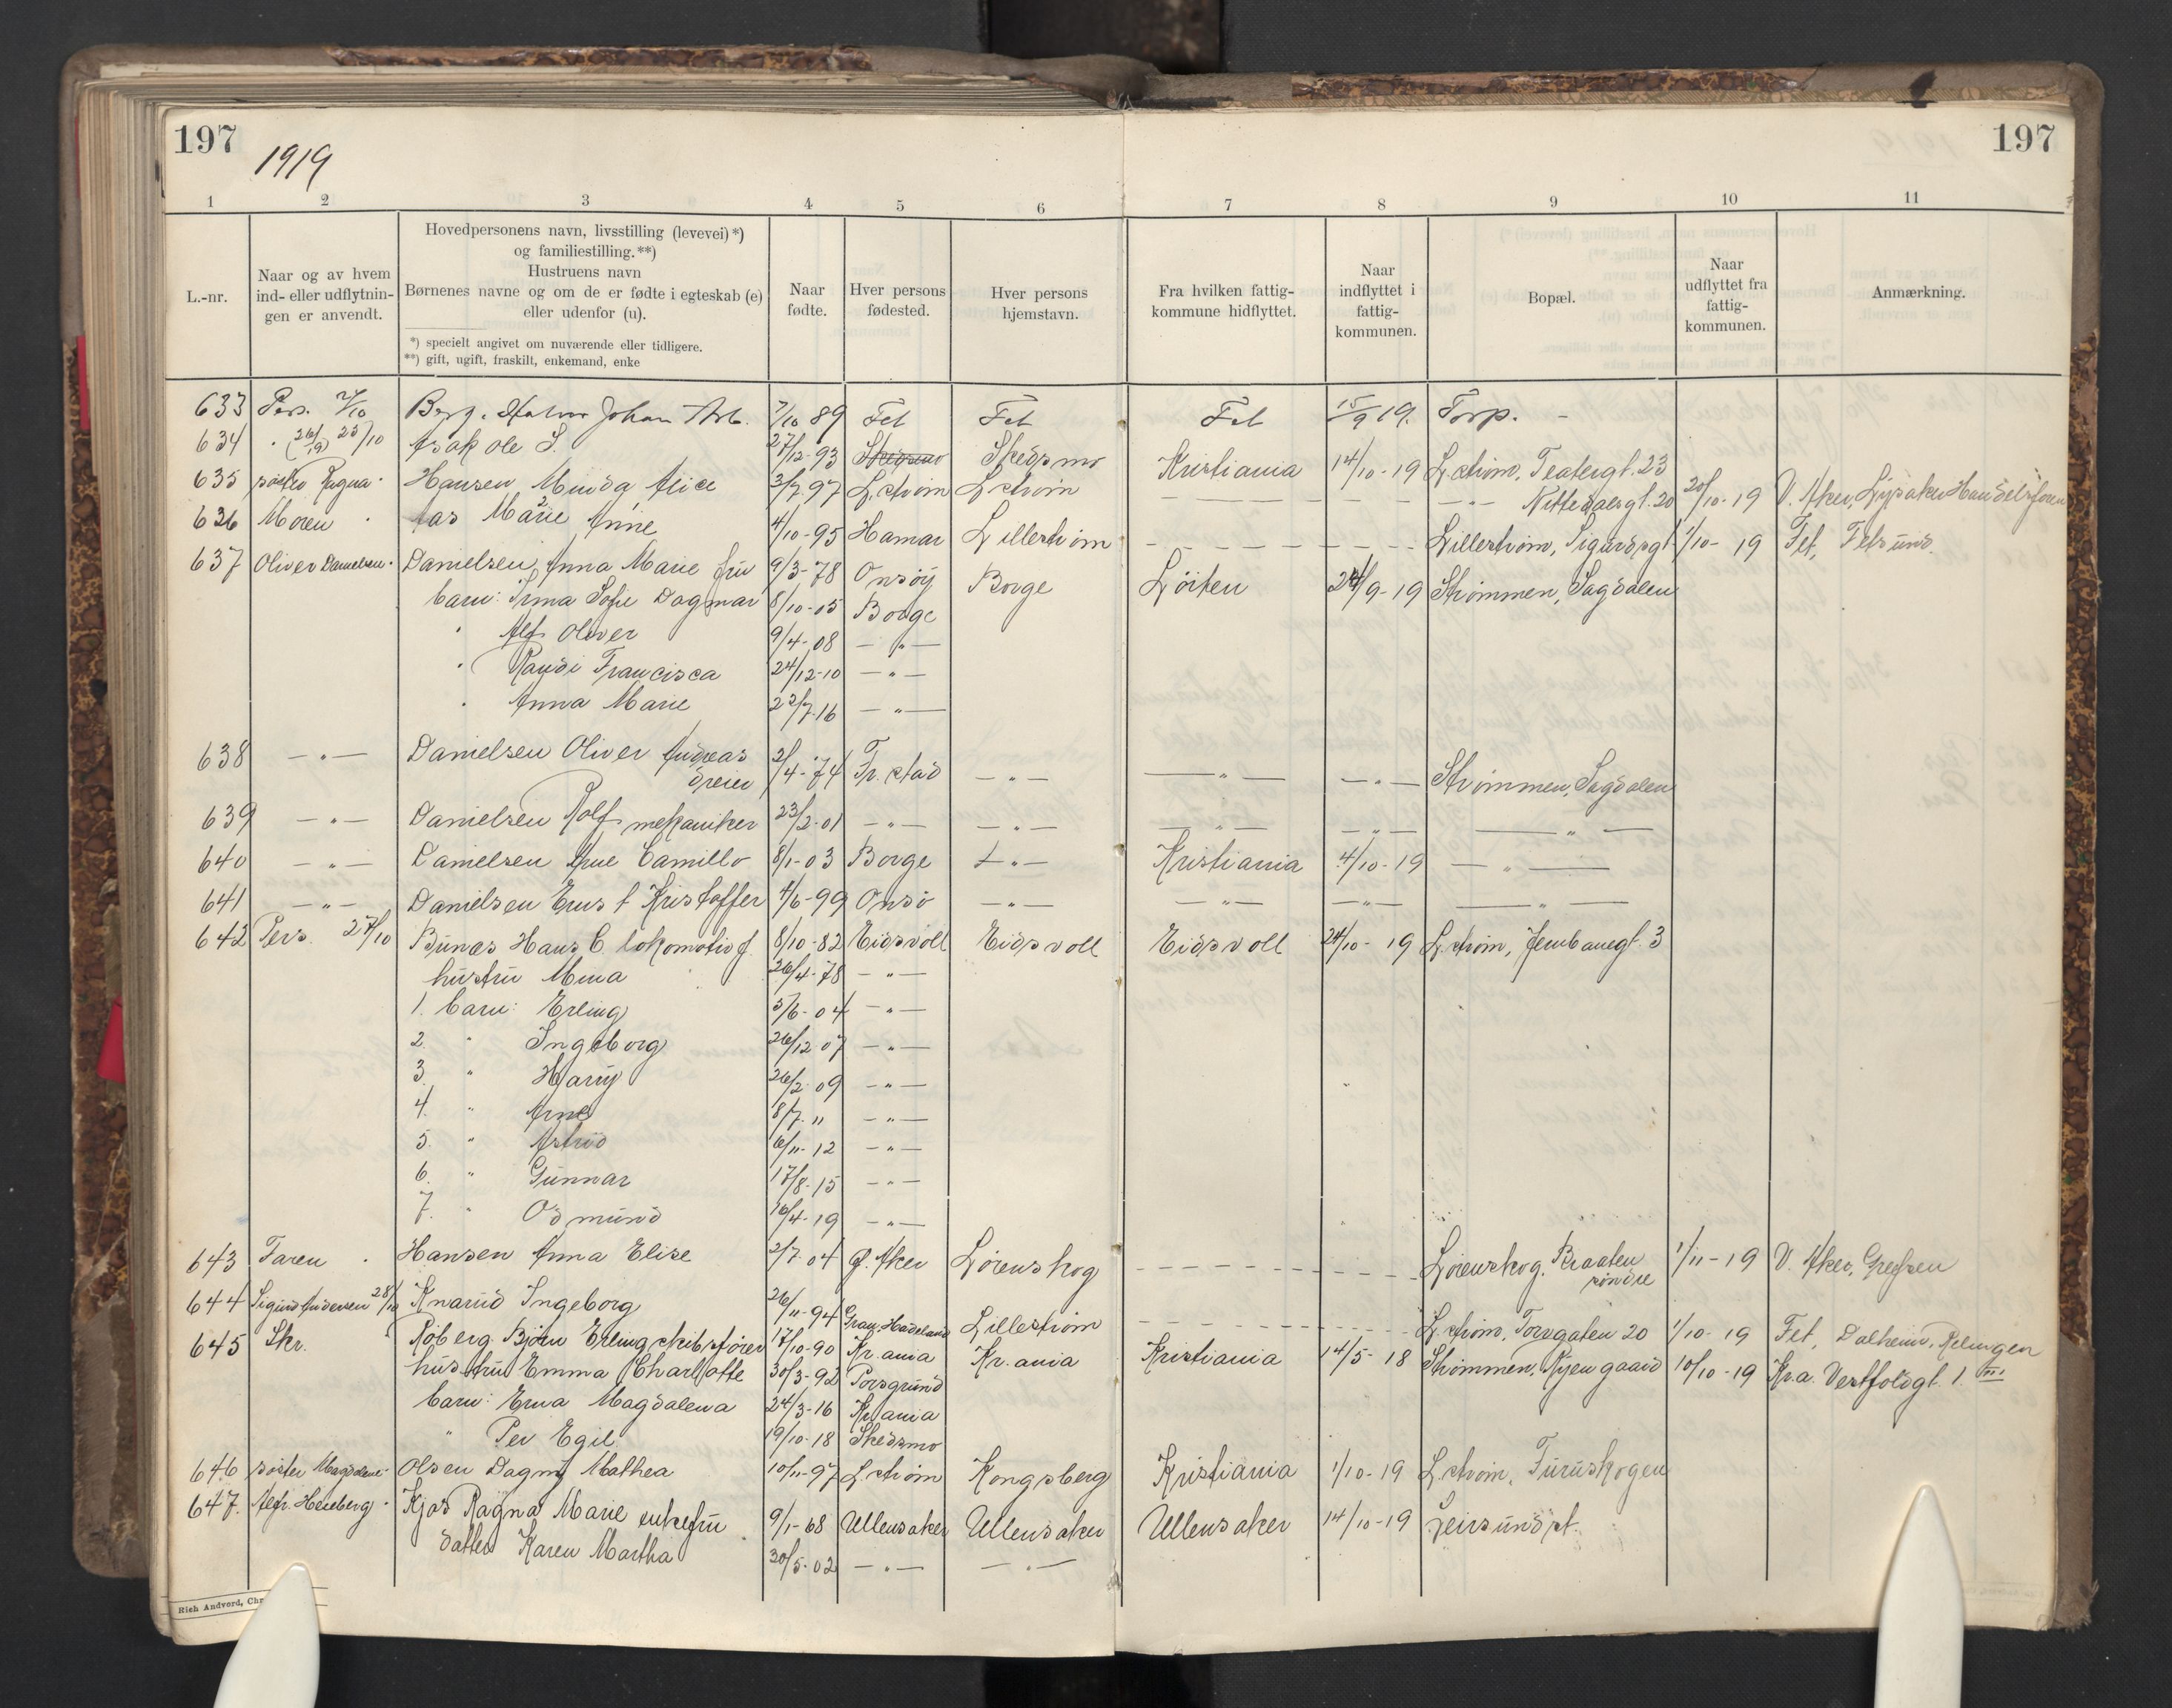 197
197
1919
1 2 3 4 5 6 7 8 9 10 11
L.-nr.
Naar og av hvem ind- eller udflytnin-gen er anvendt.
Hovedpersonens navn, livsstilling (levevei)*)
og familiestilling.**)
Hustruens navn
Børnenes navne og om de er fødte i egteskab (e)
eller udenfor (u).
*) specielt angivet om nuværende eller tidligere.
**) gift, ugift, fraskilt, enkemand, enke
Naar fødte.
Hver persons fødested.
Hver persons hjemstavn.
Fra hvilken fattig-kommune hidflyttet.
Naar indflyttet i fattig-kommunen.
Bopæl.
Naar udflyttet fra fattig-kommunen.
Anmærkning.
633 Pers. Berg, Johan Arb. 7/10 89 Fet Fet Fet 15/9 19. Torp. -
634 " (26/9) 25/10 Isak Ole S. 27/12-93 Skedsmo Skedsmo Kristiania 14/10-19 L.strøm, Teatergt. 23
635 søster Ragna Hansen Minda Alice 3/7 97 L.strøm L.strøm - - - -"- Nittedalsgt. 20 20/10-19 V. Aker, Lysaker Handelsforen
636 Moren Aas Marie Anne 4/10-95 Hamar Lillestrøm - - - Lillestrøm, Sigurdsgt. 1/10-19 Fet, Fetsund.
637 Oliver Danielsen Danielsen, Anna Marie fru 9/3-78 Onsøy Borge Løiten 24/9-19 Strømmen, Sagdalen
barn: Irma Sofie Dagmar 8/10-05 Borge
" Alf Oliver 9/4-08 -"-
" Randi Francisca 24/12-10 -"-
" Anna Marie 22/7-16 -"-
638 -"- Danielsen Oliver Andreas 2/4-74 Fr.stad -"- -"- -"- Strømmen, Sagdalen
dreier
639 -"- Danielsen Rolf mekaniker 23/2-01 -"- -"- -"- -"- -"-
640 -"- Danielsen Arne Camillo 8/1-03 Borge -"- Kristiania 4/10-19 -"-
641 -"- Danielsen Ernst Kristoffer 4/6-99 Onsø -"- -"- -"- -"-
642 Pers. 27/10 Bunæs Hans C. lokomotivf. 8/10-82 Eidsvoll Eidsvoll Eidsvoll 24/10-19 L.strøm, Jernbanegt. 3
hustru Mina 26/4-78 -"-
1. barn: Erling 5/6-04 -"-
2. " Ingeborg 26/12-07 -"-
3. " Harry 26/2-09 -"-
4. " Arne 8/7-" -"-
5. " Astrid 6/11-12 -"-
6. " Gunnar 17/8-15 -"-
7. " Odmund 16/4-19 -"-
643 Faren Hansen Anna Elise 2/7-04 Ø. Aker Lørenskog - - - Lørenskog, Braaten søndre 1/11-19 V. Aker, Grefsen
644 Sigurd Andersen 28/10 Knarud Ingeborg 26/11-94 Gran, Hadeland Lillestrøm - - - L.strøm, Torvgaten 20 1/10-19 Fet, Dalheim, Relingen
645 Skr. Røberg Bjørn Erling skibsfører 17/10-90 Kr.ania Kr.ania Kristiania 14/5-18 Strømmen, Ryen gaard 10/10-19 Kr.a. Vestfoldgt. 1. III
hustru Emma Charlotte 30/3-92 Porsgrund
barn: Erna Magdalena 24/3-16 Kr.ania
" Per Egil 19/10-18 Skedsmo
646 søster Magdalene Olsen Dagny Mathea 10/11-97 L.strøm Kongsberg Kristiania 1/10-19 L.strøm, Furuskogen
647. Alfr. Heieberg Kjos Ragna Marie enkefru 9/1-68 Ullensaker Ullensaker Ullensaker 14/10-19 Leirsund st.
datter Karen Martha 30/5-02 -"- -"-
Rich Andvord, Chr